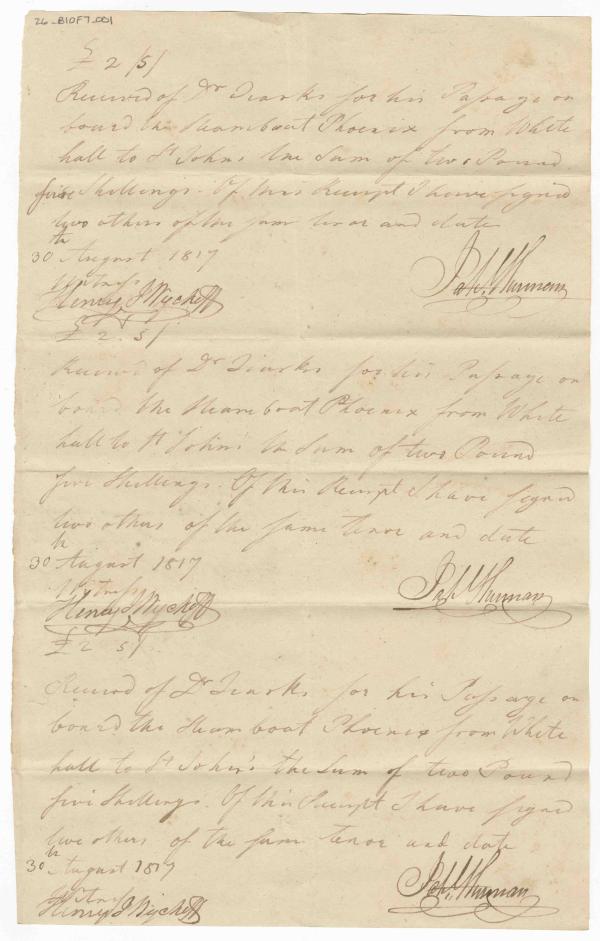 26_B10F7_001
£ 2 /5/
Received of Dr Tiarks for his Passage on
board the Steamboat Phoenix from White
hall to St Johns the Sum of two Pound
five Shillings. Of this Receipt I have signed
two others of the same tenor and date
30th August 1817
Witness
Henry J Wyckoff Jah. Sherman
£ 2. 5/
Received of Dr Tiarks for his Passage on
board the Steamboat Phoenix from White
hall to St John's the Sum of two Pound
five Shillings. Of this Receipt I have signed
two others of the same tenor and date
30th August 1817
Witness
Henry J Wyckoff Jah. Sherman
£ 2 5/
Received of Dr Tiarks for his Passage on
board the Steamboat Phoenix from White
hall to St John's the Sum of two Pound
five Shillings. Of this Receipt I have signed
two others of the same tenor and date
30th August 1817
Witness
Henry J Wyckoff Jah. Sherman